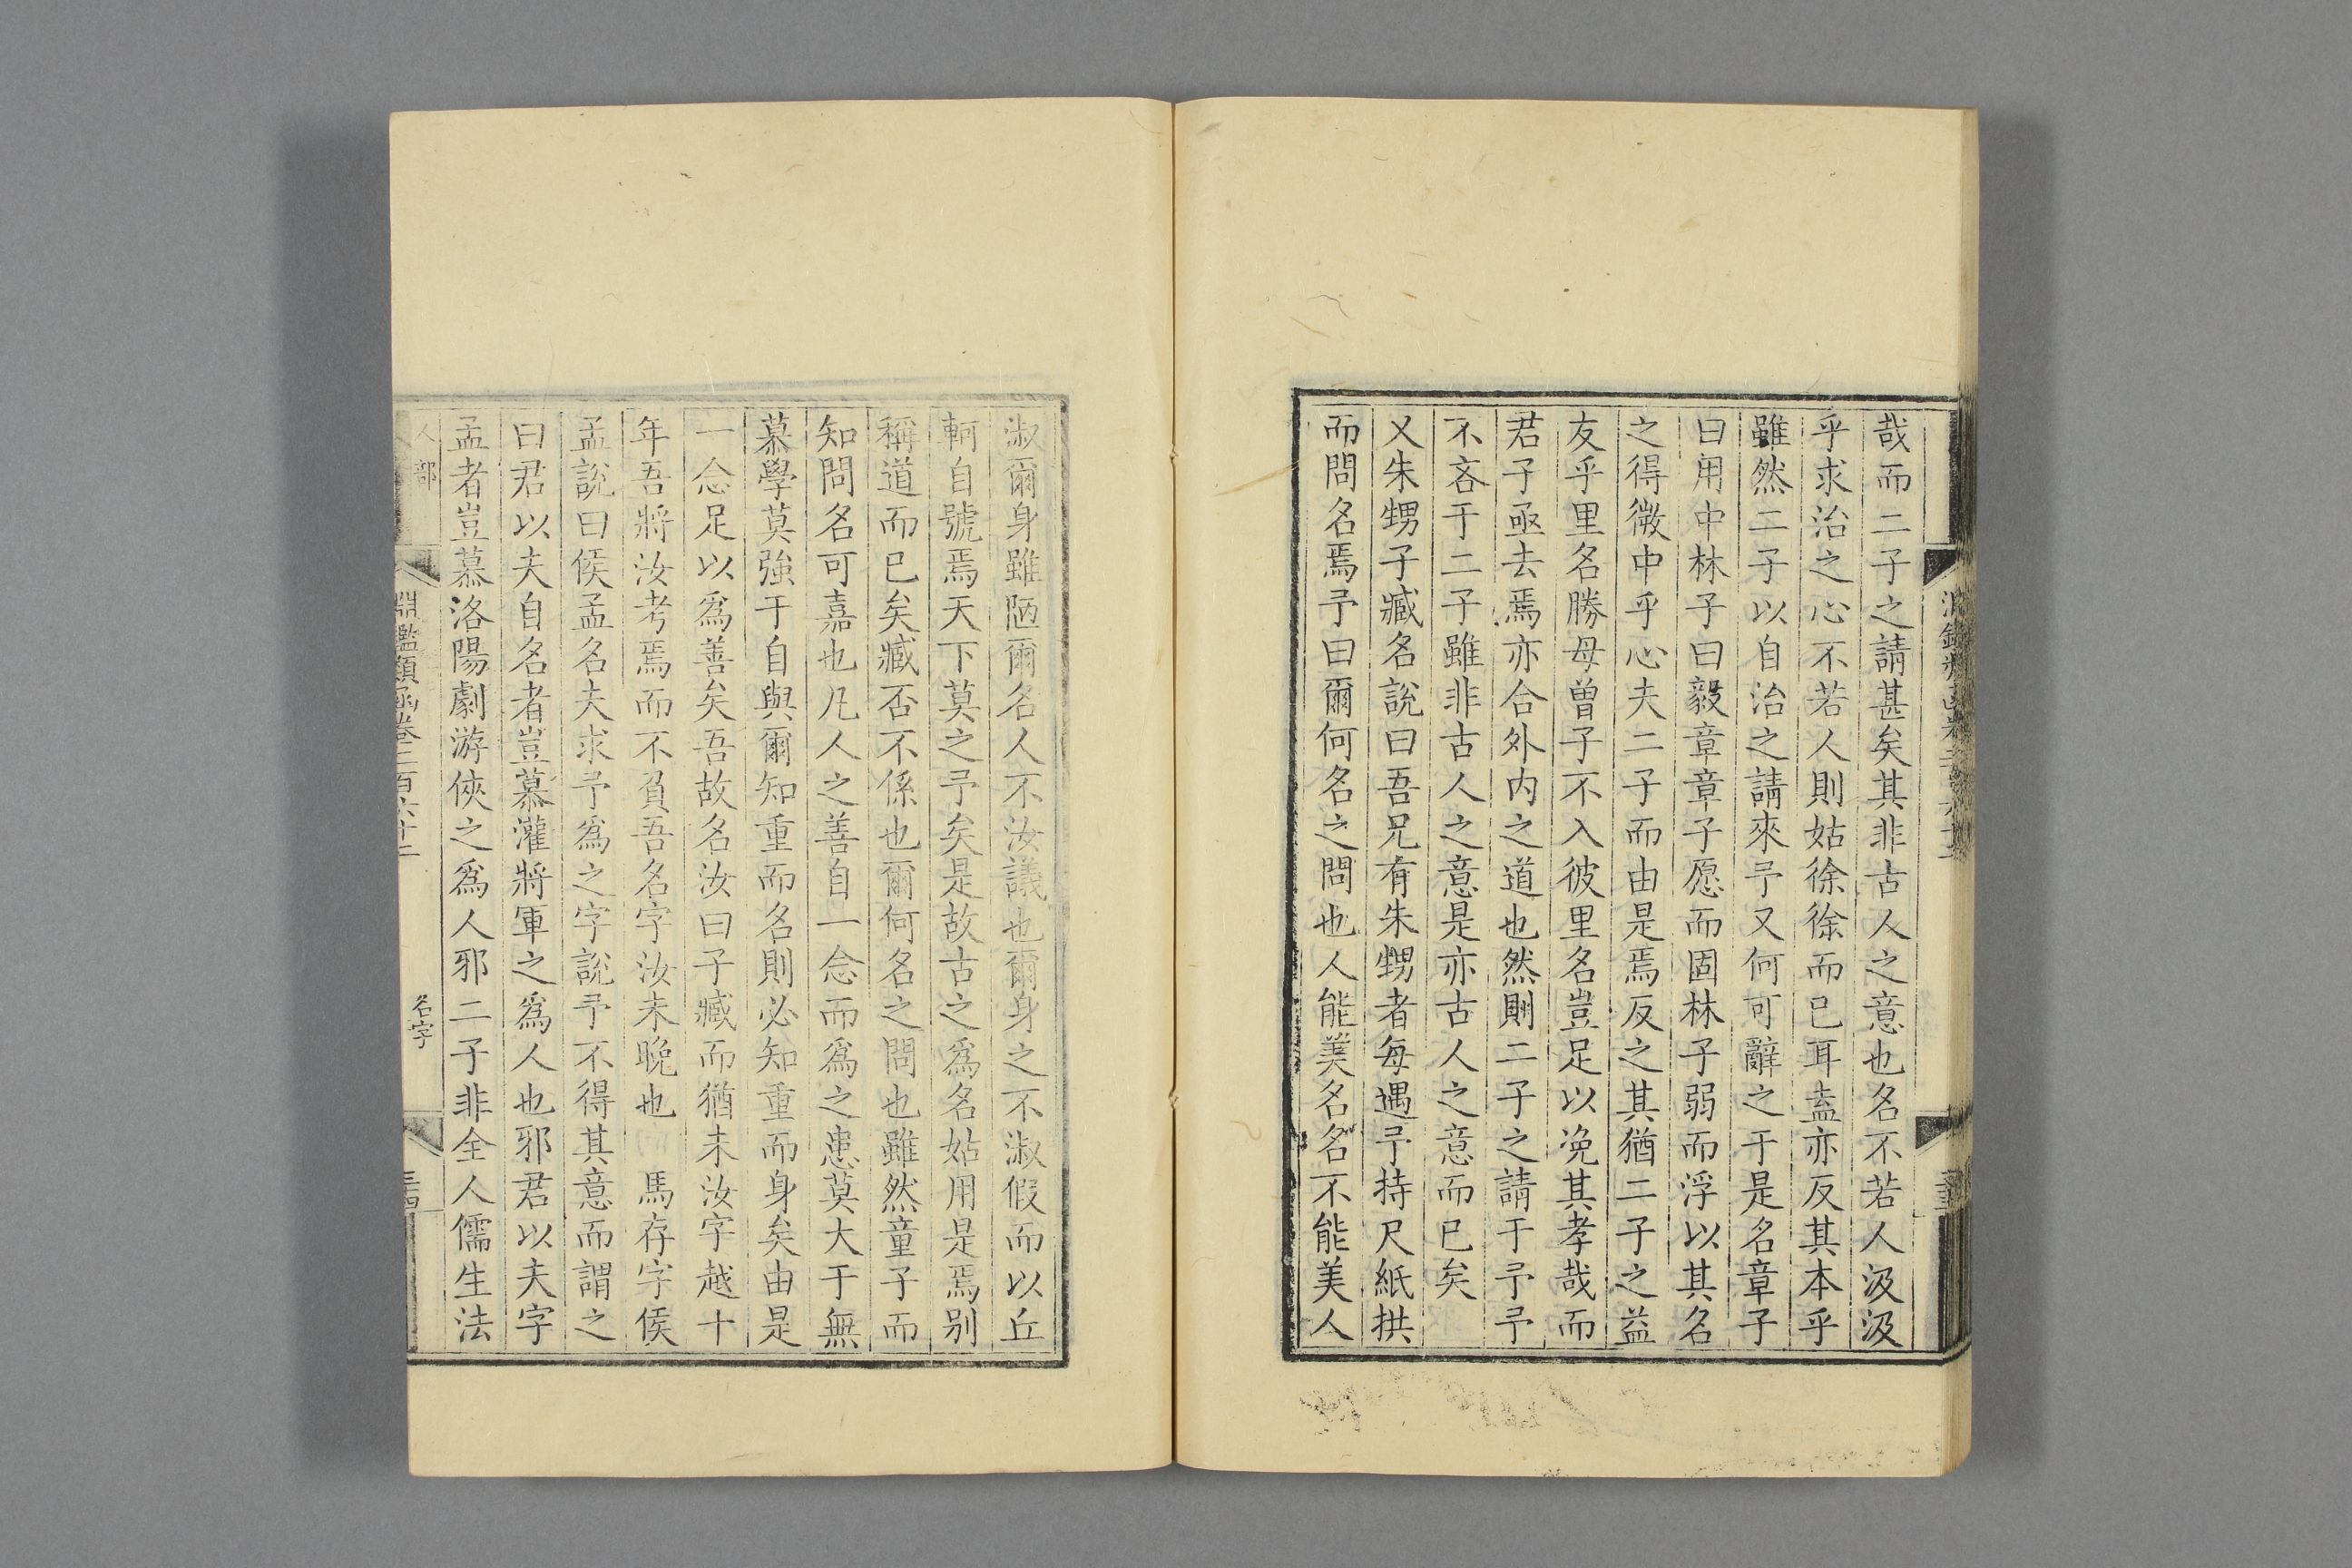 哉而二子之請甚矣其非古人之意也名不若人汲汲
乎求治之心不若人則姑徐徐而已耳盍亦反其本乎
雖然二子以自治之請來予又何可辭之于是名章子
曰用中林子曰毅章章子愿而固林子弱而浮以其名
之得微中乎心夫二子而由是焉反之其猶二子之益
友乎里名勝母曽子不入彼里名豈足以浼其孝哉而
君子亟去焉亦合外内之道也然則二子之請于予予
不吝于二子雖非古人之意是亦古人之意而已矣
又朱甥子臧名說曰吾兄有朱甥者每遇予持尺紙拱
而問名焉予曰爾何名之問也人能美名名不能美人
淑爾身雖陋爾名人不汝議也爾身之不淑假而以丘
軻自號焉天下莫之予矣是故古之為名姑用是焉别
稱道而已矣臧否不係也爾何名之問也雖然童子而
知問名可嘉也凡人之善自一念而為之患莫大于無
慕學莫強于自與爾知重而名則必知重而身矣由是
一念足以為善矣吾故名汝曰子臧而猶未汝字越十
年吾將汝考焉而不負吾名字汝未晚也 馬存字侯
孟說曰侯孟名夫求予為之字說予不得其意而謂之
曰君以夫自名者豈慕灌將軍之為人也邪君以夫字
孟者豈慕洛陽劇游俠之為人邪二子非全人儒生法
人部
淵鑑類函卷二百六十二
名字
三四